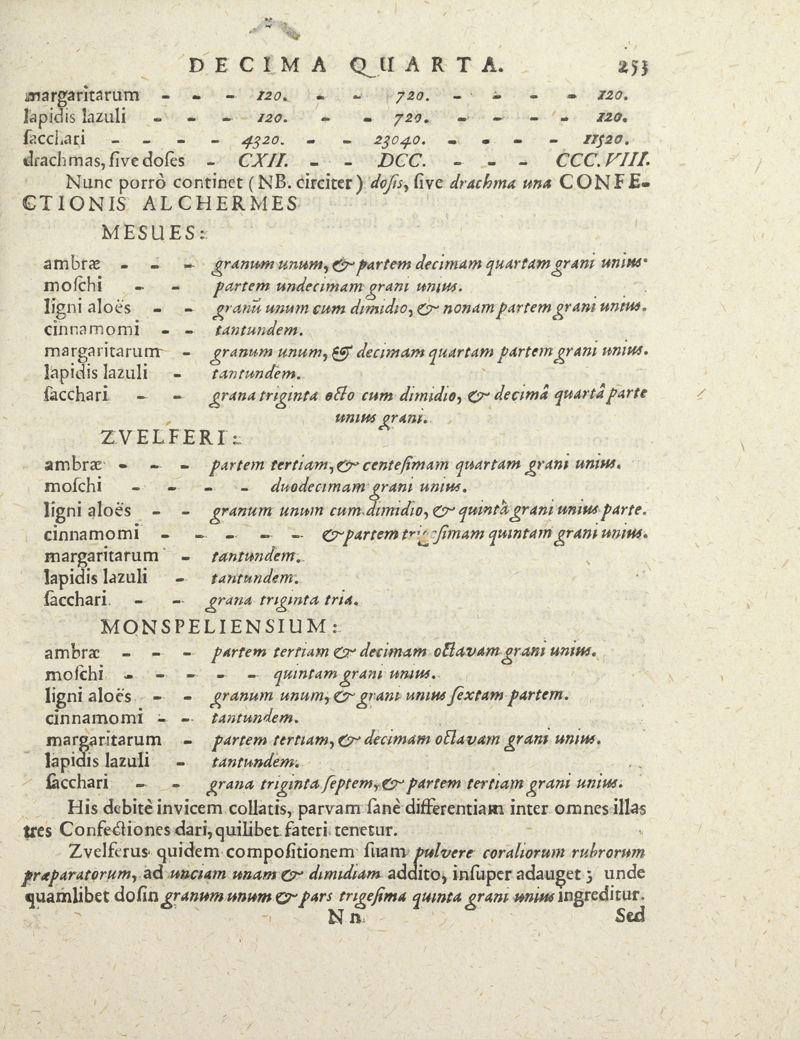 DECIMA QUARTA. 253
margaritarum - - - 120. - - 720. - - - - 120.
lapidis lazuli - - - 120. - - 720. - - - - 120.
ſacchari - - - - 4320. - - 23040. - - - - 11520.
drachmas, ſive doſes - CXII. - - DCC. - - - CCC.VIII.
Nunc porrò continet (NB. circiter) doſis, ſive drachma una CONFE-
CTIONIS ALCHERMES
MESUES:
ambræ - - - granum unum, & partem decimam quartam grani unius.
moſchi - - partem undecimam grani unius.
ligni aloës - - granū unum cum dimidio, & nonam partem grani unius.
cinnamomi - - tantundem.
margaritarum - granum unum, & decimam quartam partem grani unius.
lapidis lazuli - tantundem.
ſacchari - - grana triginta octo cum dimidio, & decimâ quartâ parte
unius grani.
ZVELFERI:
ambræ - - - partem tertiam, & centeſimam quartam grani unius.
moſchi - - - - duodecimam grani unius.
ligni aloës - - granum unum cum dimidio, & quintâ grani unius parte.
cinnamomi - - - - - & partem trigeſimam quintam grani unius.
margaritarum - tantundem.
lapidis lazuli - tantundem.
ſacchari - - grana triginta tria.
MONSPELIENSIUM:
ambræ - - - partem tertiam & decimam octavam grani unius.
moſchi - - - - - quintam grani unius.
ligni aloës - - granum unum, & grani unius ſextam partem.
cinnamomi - - tantundem.
margaritarum - partem tertiam, & decimam octavam grani unius.
lapidis lazuli - tantundem.
ſacchari - - grana triginta ſeptem, & partem tertiam grani unius.
His debitè invicem collatis, parvam ſanè differentiam inter omnes illas
tres Confectiones dari, quilibet fateri tenetur.
Zvelferus quidem compoſitionem ſuam pulvere coraliorum rubrorum
præparatorum, ad unciam unam & dimidiam addito, inſuper adauget; unde
quamlibet doſin granum unum & pars trigeſima quinta grani unius ingreditur.
N n Sed